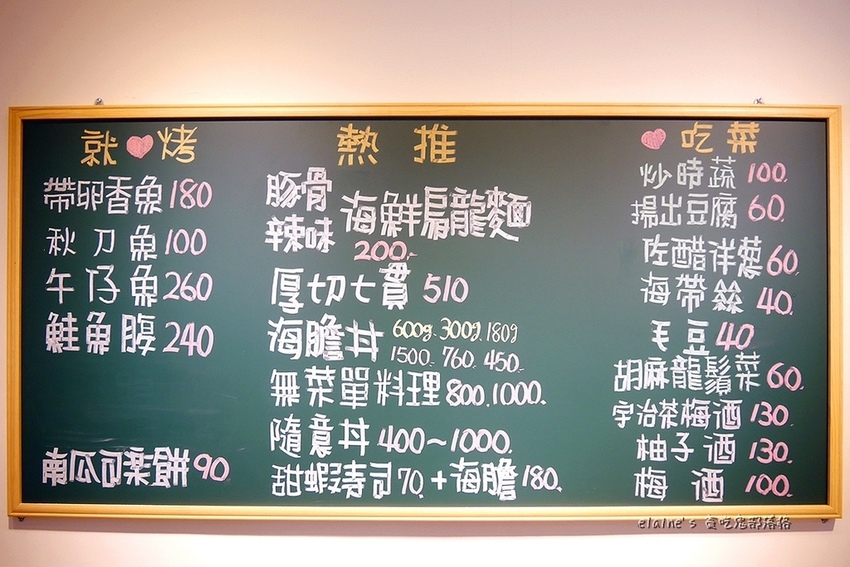 就❤烤
帶卵香魚180
秋刀魚100
午仔魚260
鮭魚腹240
南瓜可樂餅90
熱推
豚骨
辣味
海鮮烏龍麵
200.-
厚切七貫510
海膽丼 600g. 300g. 180g
1500. 760. 450.
無菜單料理800.1000.
隨意丼400~1000.
甜蝦壽司70.+海膽180.
❤吃菜
炒時蔬100.
揚出豆腐60.
佐醋洋蔥60.
海帶絲40.
毛豆40.
胡麻龍鬚菜60.
宇治茶梅酒130.
柚子酒130.
梅酒100.
elaine's 貪吃鬼部落格